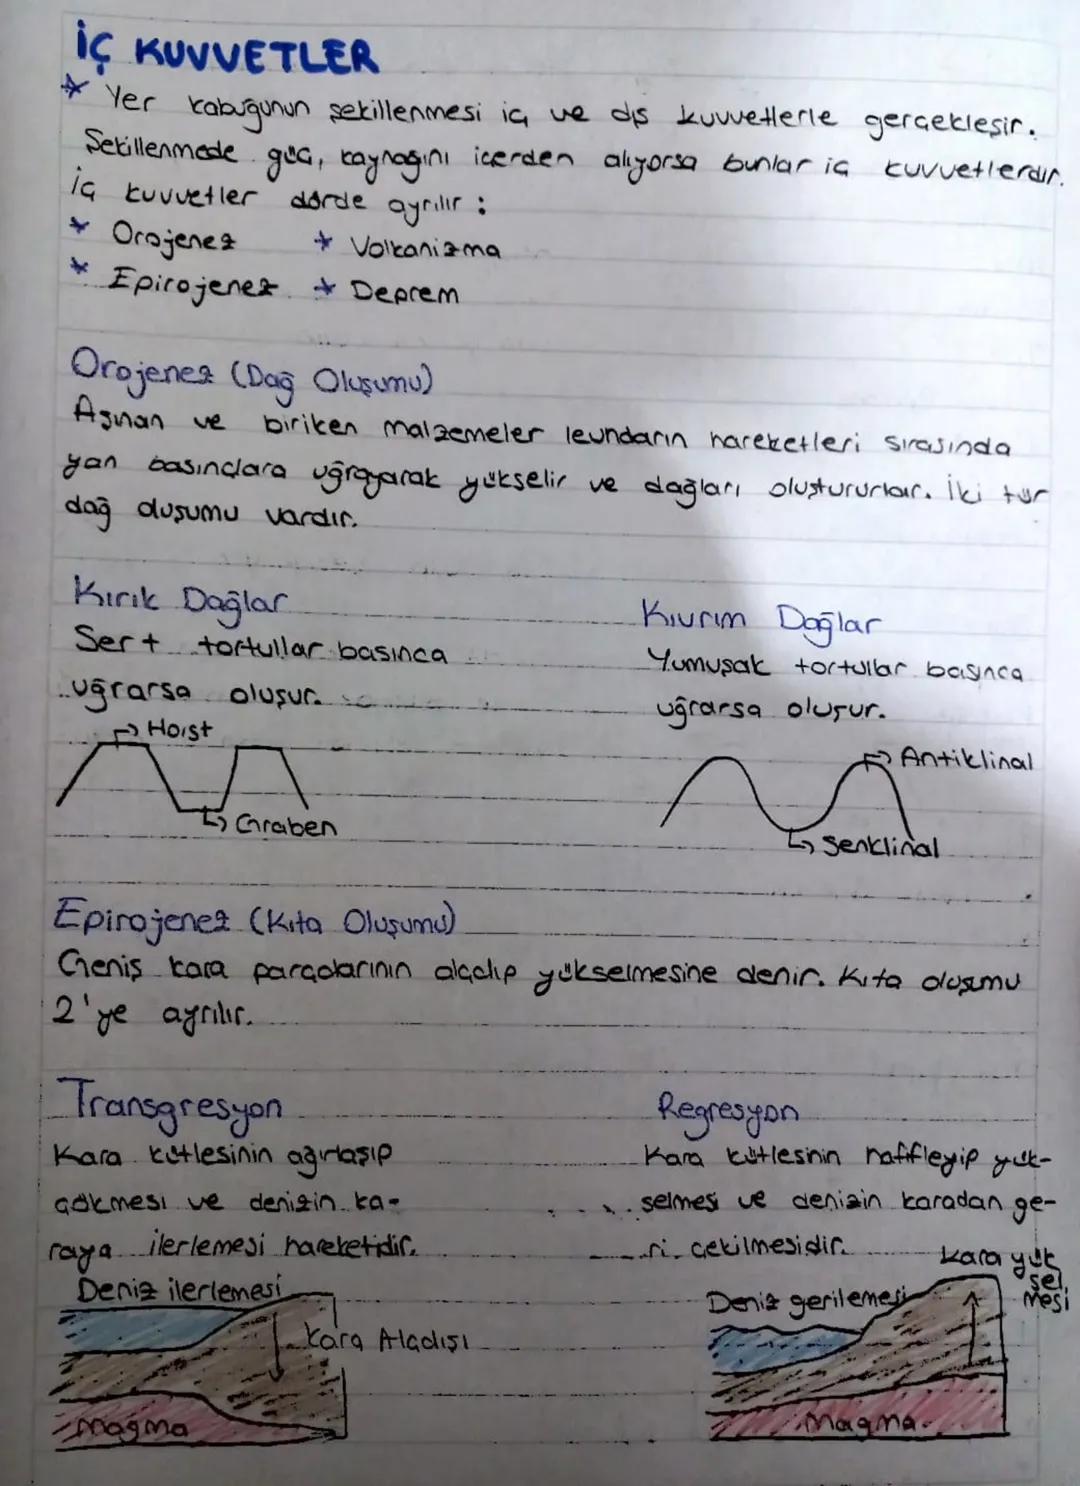 İÇ KUVVETLER
* Yer kabuğunun şekillenmesi iç ve dış kuvvetlerle gerçekleşir.
Şekillenmede güç, kaynağını içerden alıyorsa bunlar iç kuvvetlerdir.
İç kuvvetler dörde ayrılır :
* Orojenez * Volkanizma
* Epirojenez * Deprem
Orojenez (Dağ Oluşumu)
Aşınan ve biriken malzemeler levhaların hareketleri sırasında
yan basınçlara uğrayarak yükselir ve dağları oluştururlar. İki tür
dağ oluşumu vardır.
Kırık Dağlar
Sert tortullar basınca
uğrarsa oluşur.
Horst
Graben
Kıvrım Dağlar
Yumuşak tortullar basınca
uğrarsa oluşur.
Antiklinal
Senklinal
Epirojenez (Kıta Oluşumu)
Geniş kara parçalarının alçalıp yükselmesine denir. Kıta oluşumu
2'ye ayrılır.
Transgresyon
Kara kütlesinin ağırlaşıp
çökmesi ve denizin ka-
raya ilerlemesi hareketidir.
Deniz ilerlemesi
Kara Alçalışı
Magma
Regresyon
Kara kütlesinin hafifleyip yük-
selmesi ve denizin karadan ge-
ri çekilmesidir.
Kara yük
sel
mesi
Deniz gerilemesi
Magma